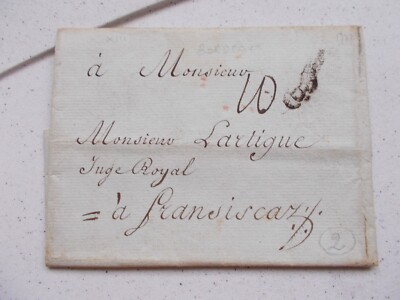 à Monsieur
10
Monsieur Lartigue
Juge Royal
= à fransiscaz
2